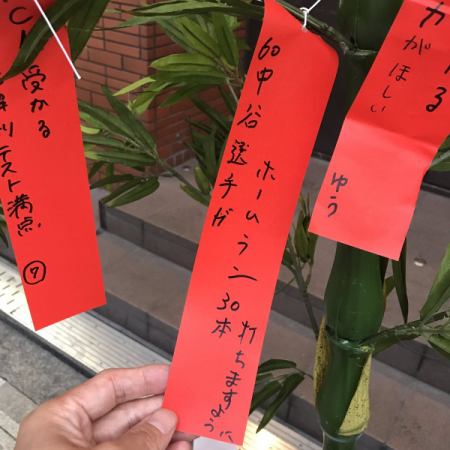 60中谷選手が
ホームラン
30本
打ちますように
受かる
テスト満点
⑦
がほしい
ゆう